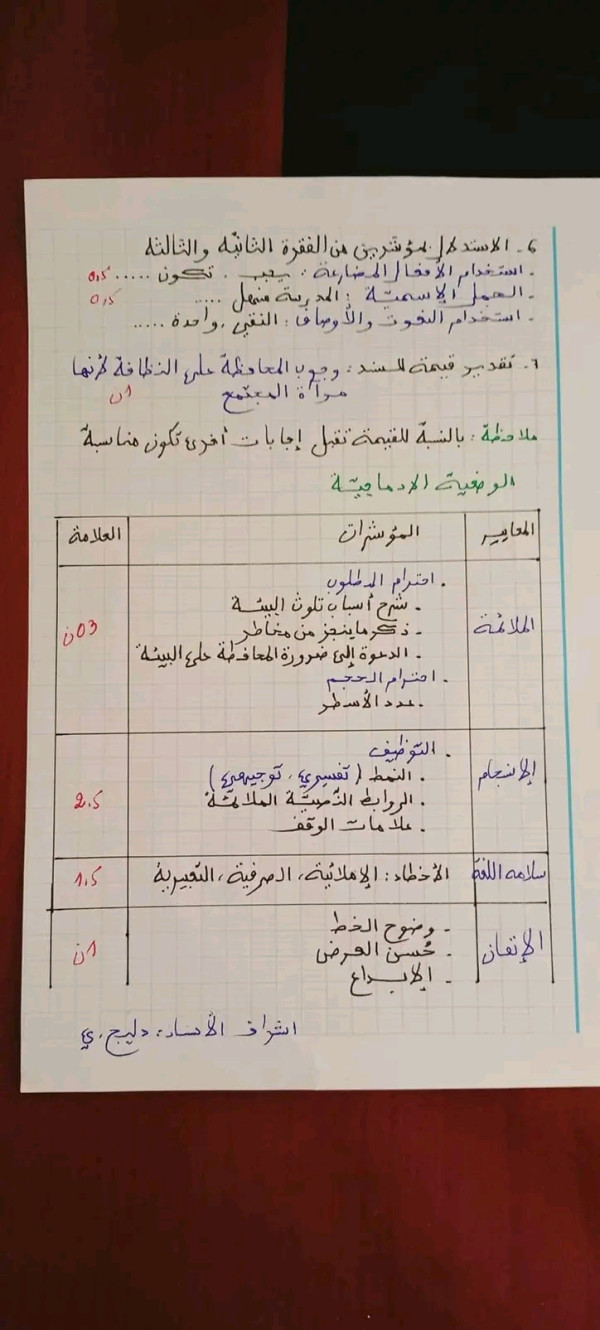 6. الاستدلال بمؤشرين من الفقرة الثانية والثالثة
. استخدام الأفعال المضارعة: يجب، تكون ..... 0,5
- الجمل الاسمية: المدرسة منهل .... 0,5
- استخدام النعوت والأوصاف: النقي، واحدة .....
7. تقدير قيمة للسند: وجوب المحافظة على النظافة لأنها
مرآة المجتمع 1ن
ملاحظة: بالنسبة للقيمة تقبل إجابات أخرى تكون مناسبة
الوضعية الإدماجية
المعايير المؤشرات العلامة
الملائمة
. احترام المطلوب
- شرح أسباب تلوث البيئة
- ذكر ما ينجز من مخاطر
- الدعوة إلى ضرورة المحافظة على البيئة
. احترام الحجم
- عدد الأسطر
03ن
الإنسجام
. التوظيف
. النمط (تفسيري، توجيهي)
. الروابط النصية الملائمة
. علامات الوقف
2.5
سلامة اللغة الأخطاء: الإملائية، الصرفية، التعبيرية 1.5
الإتقان
- وضوح الخط
- حُسن العرض
- الإبداع
1ن
اشراف الأستاذ: دليج. ي